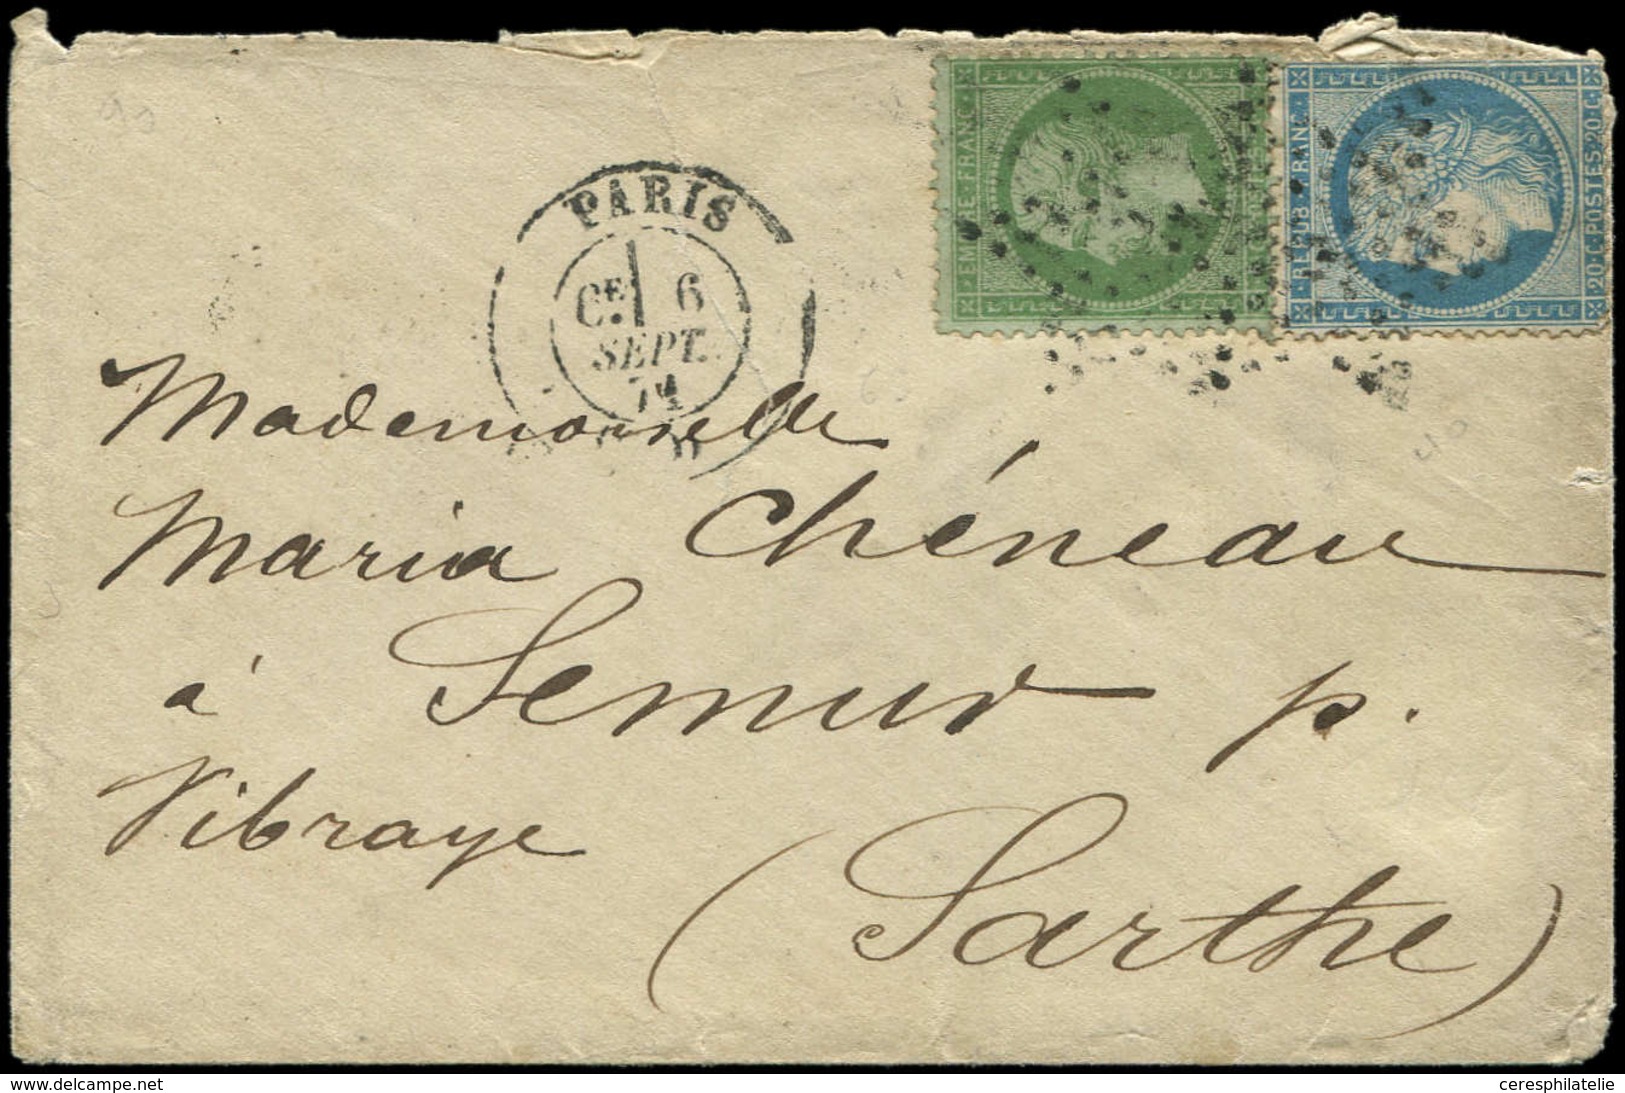 PARIS
Cᴱ. 6
SEPT.
71
EMPIRE FRANC
REPUB FRANC
20 C POSTES 20 C
Mademoiselle
Maria Chéneau
à Semur p.
Vibraye
(Sarthe)
ceresphilatelie